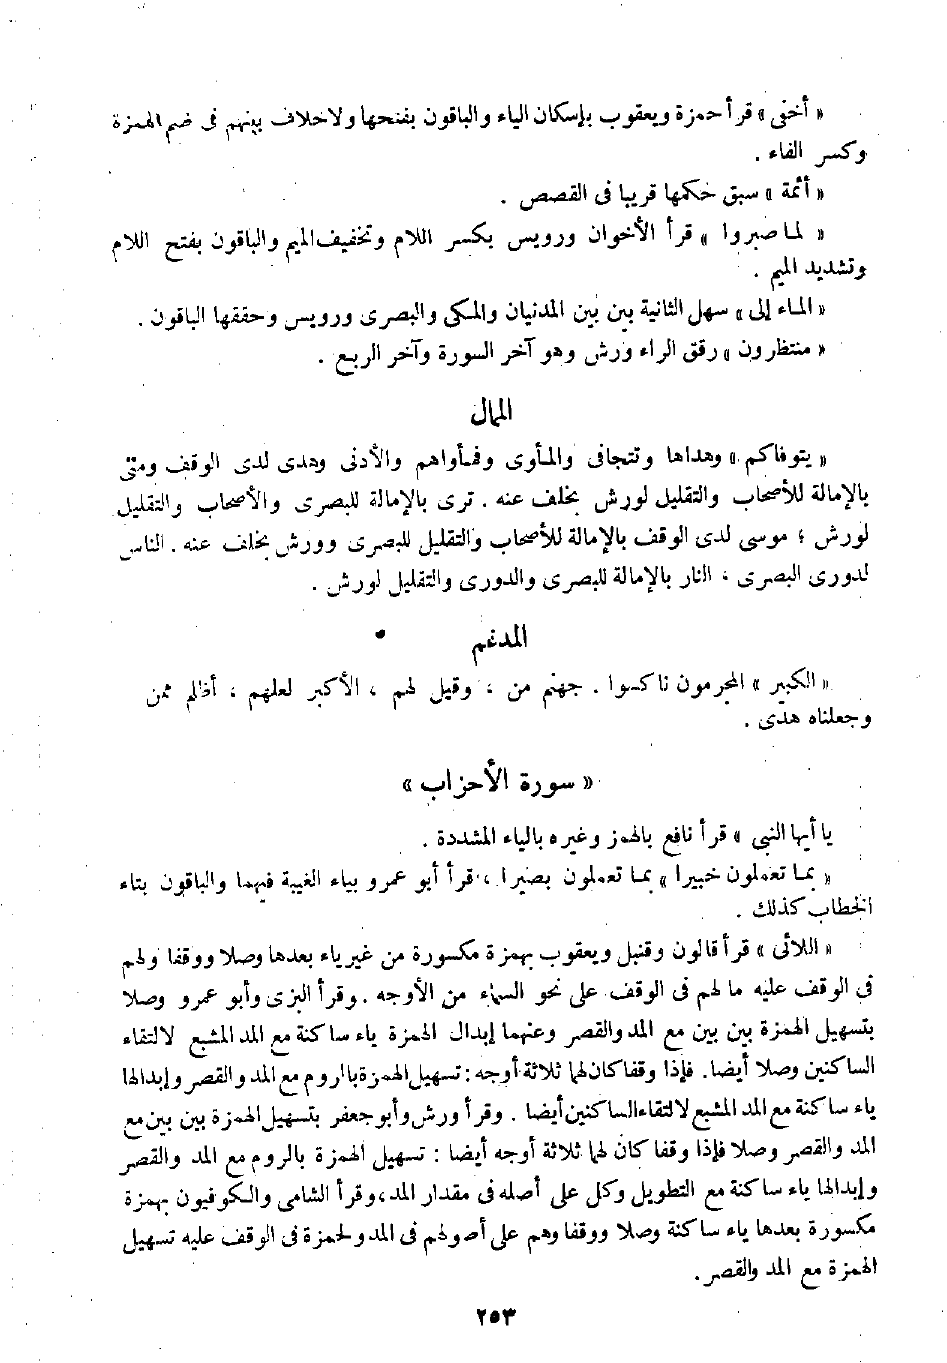 « أخفى » قرأ حمزة ويعقوب بإسكان الياء والباقون بفتحها ولا خلاف بينهم فى ضم الهمزة
وكسر الفاء .
« أئمة » سبق حكمها قريبا فى القصص .
« لما صبروا » قرأ الأخوان ورويس بكسر اللام وتخفيف الميم والباقون بفتح اللام
وتشديد الميم .
« الماء إلى » سهل الثانية بين بين المدنيان والمكى والبصرى ورويس وحققها الباقون .
« منتظرون » رقق الراء ورش وهو آخر السورة وآخر الربع .
الممال
« يتوفاكم » وهداها وتتجافى والمأوى وفمأواهم والأدنى وهدى لدى الوقف ومتى
بالإمالة للأصحاب والتقليل لورش بخلف عنه . ترى بالإمالة للبصرى والأصحاب والتقليل
لورش ؛ موسى لدى الوقف بالإمالة للأصحاب والتقليل للبصرى وورش بخلف عنه . الناس
لدورى البصرى ، النار بالإمالة للبصرى والدورى والتقليل لورش .
المدغم
« الكبير » المجرمون ناكسوا . جهنم من ، وقيل لهم ، الأكبر لعلهم ، أظلم ممن
وجعلناه هدى .
« سورة الأحزاب »
يا أيها النبى » قرأ نافع بالهمز وغيره بالياء المشددة .
« بما تعملون خبيرا » بما تعملون بصيرا ، قرأ أبو عمرو بياء الغيبة فيهما والباقون بتاء
الخطاب كذلك .
« اللائى » قرأ قالون وقنبل ويعقوب بهمزة مكسورة من غير ياء بعدها وصلا ووقفا ولهم
فى الوقف عليه ما لهم فى الوقف على نحو السماء من الأوجه . وقرأ البزى وأبو عمرو وصلا
بتسهيل الهمزة بين بين مع المد والقصر وعنهما إبدال الهمزة ياء ساكنة مع المد المشبع لالتقاء
الساكنين وصلا أيضا. فإذا وقفا كان لهما ثلاثة أوجه : تسهيل الهمزة بالروم مع المد والقصر وإبدالها
ياء ساكنة مع المد المشبع لالتقاء الساكنين أيضا . وقرأ ورش وأبو جعفر بتسهيل الهمزة بين بين مع
المد والقصر وصلا فإذا وقفا كان لهما ثلاثة أوجه أيضا : تسهيل الهمزة بالروم مع المد والقصر
وإبدالها ياء ساكنة مع التطويل وكل على أصله فى مقدار المد، وقرأ الشامى والكوفيون بهمزة
مكسورة بعدها ياء ساكنة وصلا ووقفا وهم على أصولهم فى المد ولحمزة فى الوقف عليه تسهيل
الهمزة مع المد والقصر .
٢٥٣